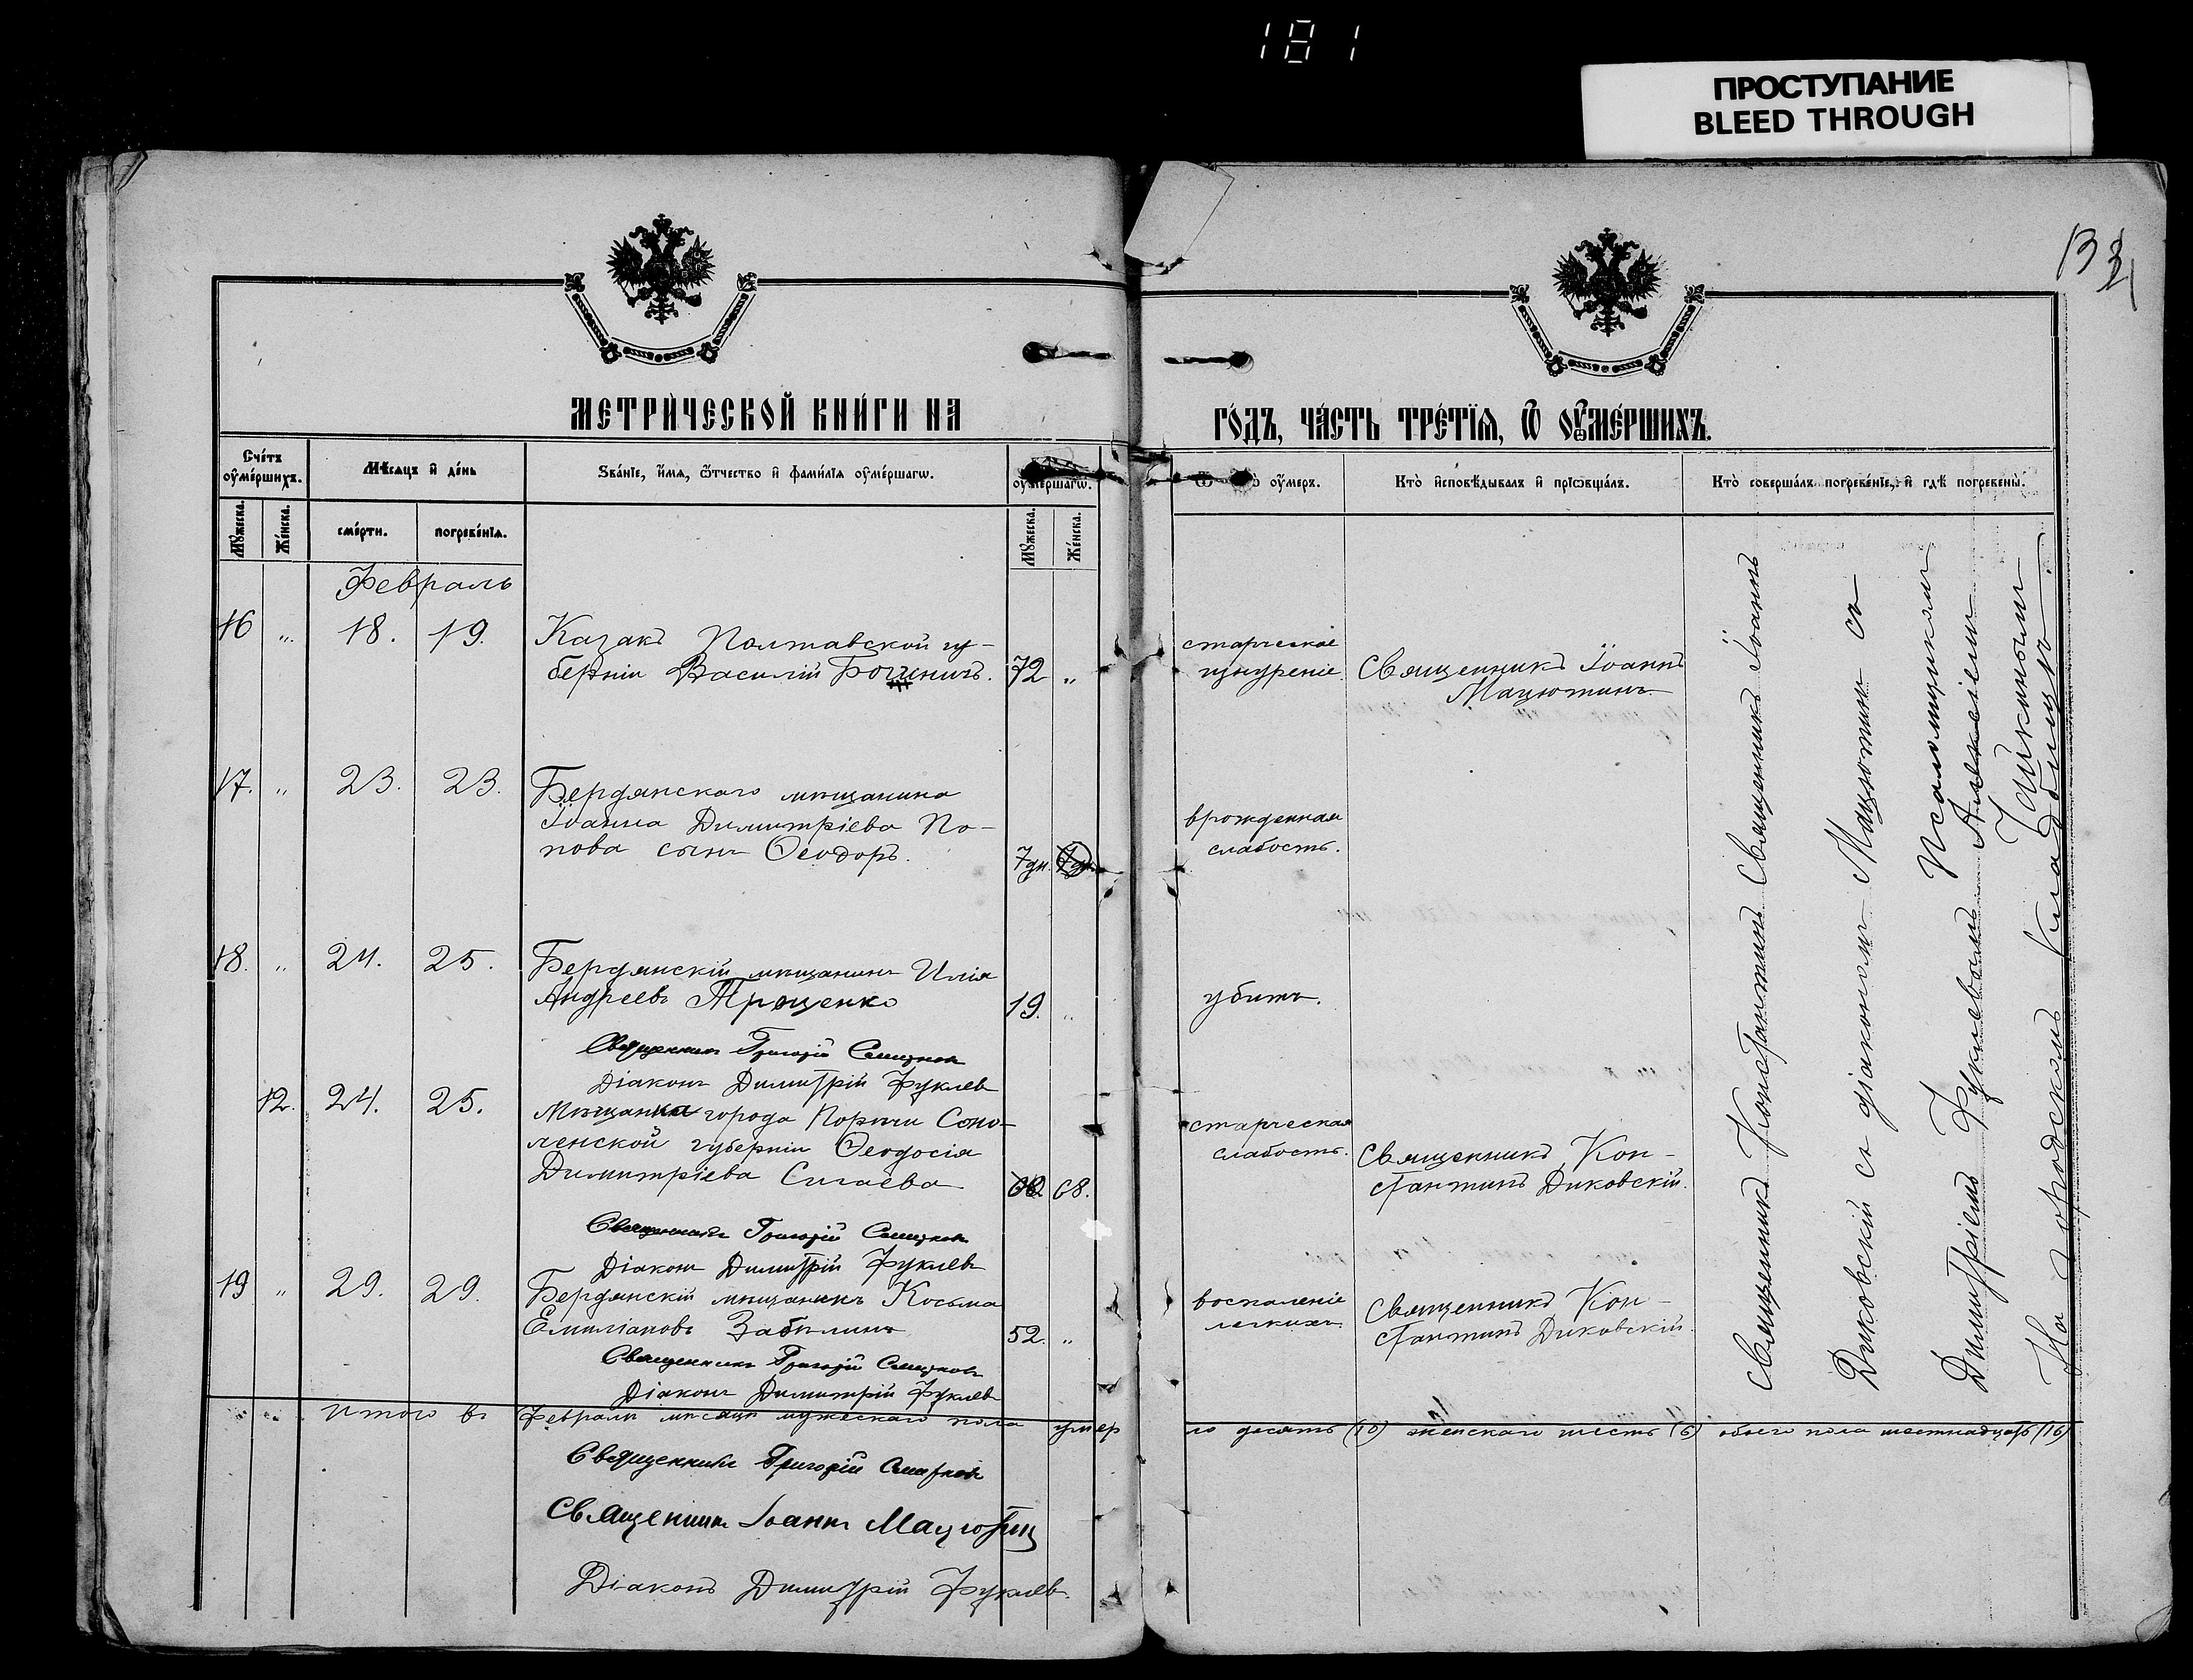 181
ПРОСТУПАНИЕ
BLEED THROUGH
МЕТРИ́ЧЕСКОЙ КНИ́ГИ НА
ГО́ДЪ, ЧА́СТЬ ТРЕ́ТЇѦ, Ѿ ОУ҆МЕ́РШИХЪ.
Сче́тъ оу҆ме́ршихъ.
Мѣ́сѧцъ и҆ де́нь
Зва́нїе, и҆́мѧ, ѻ҆́тчество и҆ фами́лїѧ оу҆ме́ршагѡ.
оу҆ме́ршагѡ.
оу҆́меръ.
Кто̀ и҆сповѣ́дывалъ и҆ прїѡбща́лъ.
Кто̀ соверша́лъ погребе́нїе, и҆ гдѣ̀ погребены̀.
Мꙋ́жеска.
Же́нска.
сме́рти.
погребе́нїѧ.
Мꙋ́жеска.
Же́нска.
Февраль
16 " 18. 19. Казакъ Полтавской гу-
берніи Василій 72 "
старческое
изнуреніе
Священникъ Іоаннъ
Мацютинъ
17. " 23. 23. Бердянскаго мѣщанина
Іоанна Димитріева По-
пова сынъ Ѳеодоръ. 7 дн.
врожденная
слабость.
18. " 24. 25. Бердянскій мѣщанинъ Илія
Андреевъ Троценко 19. "
убитъ.
Священникъ Григорій
Діаконъ Димитрій Фуклевъ
12. 24. 25. Мѣщанка города Порѣчи Смо-
ленской губерніи Ѳеодосія
Димитріева Сигаева 68.
старческая
слабость.
Священникъ Кон-
стантинъ Диковскій.
Священникъ Григорій
Діаконъ Димитрій Фуклевъ
19 " 29. 29. Бердянскій мѣщанинъ Косьма
Емиліановъ Забѣлинъ 52. "
воспаленіе
легкихъ.
Священникъ Кон-
стантинъ Диковскій.
Священникъ Григорій
Діаконъ Димитрій Фуклевъ
Священникъ Константинъ Священникъ Іоаннъ
Диковскій съ діакономъ Мацютинъ съ
Димитріемъ Фуклевымъ Псаломщикомъ
Алексіемъ
На городскомъ кладбищѣ.
Итого въ февралѣ мѣсяцѣ мужескаго пола умер
ло десять (10) женскаго шесть (6) обоего пола шестнадцать (16)
Священникъ Григорій
Священникъ Іоаннъ Мацютинъ
Діаконъ Димитрій Фуклевъ.